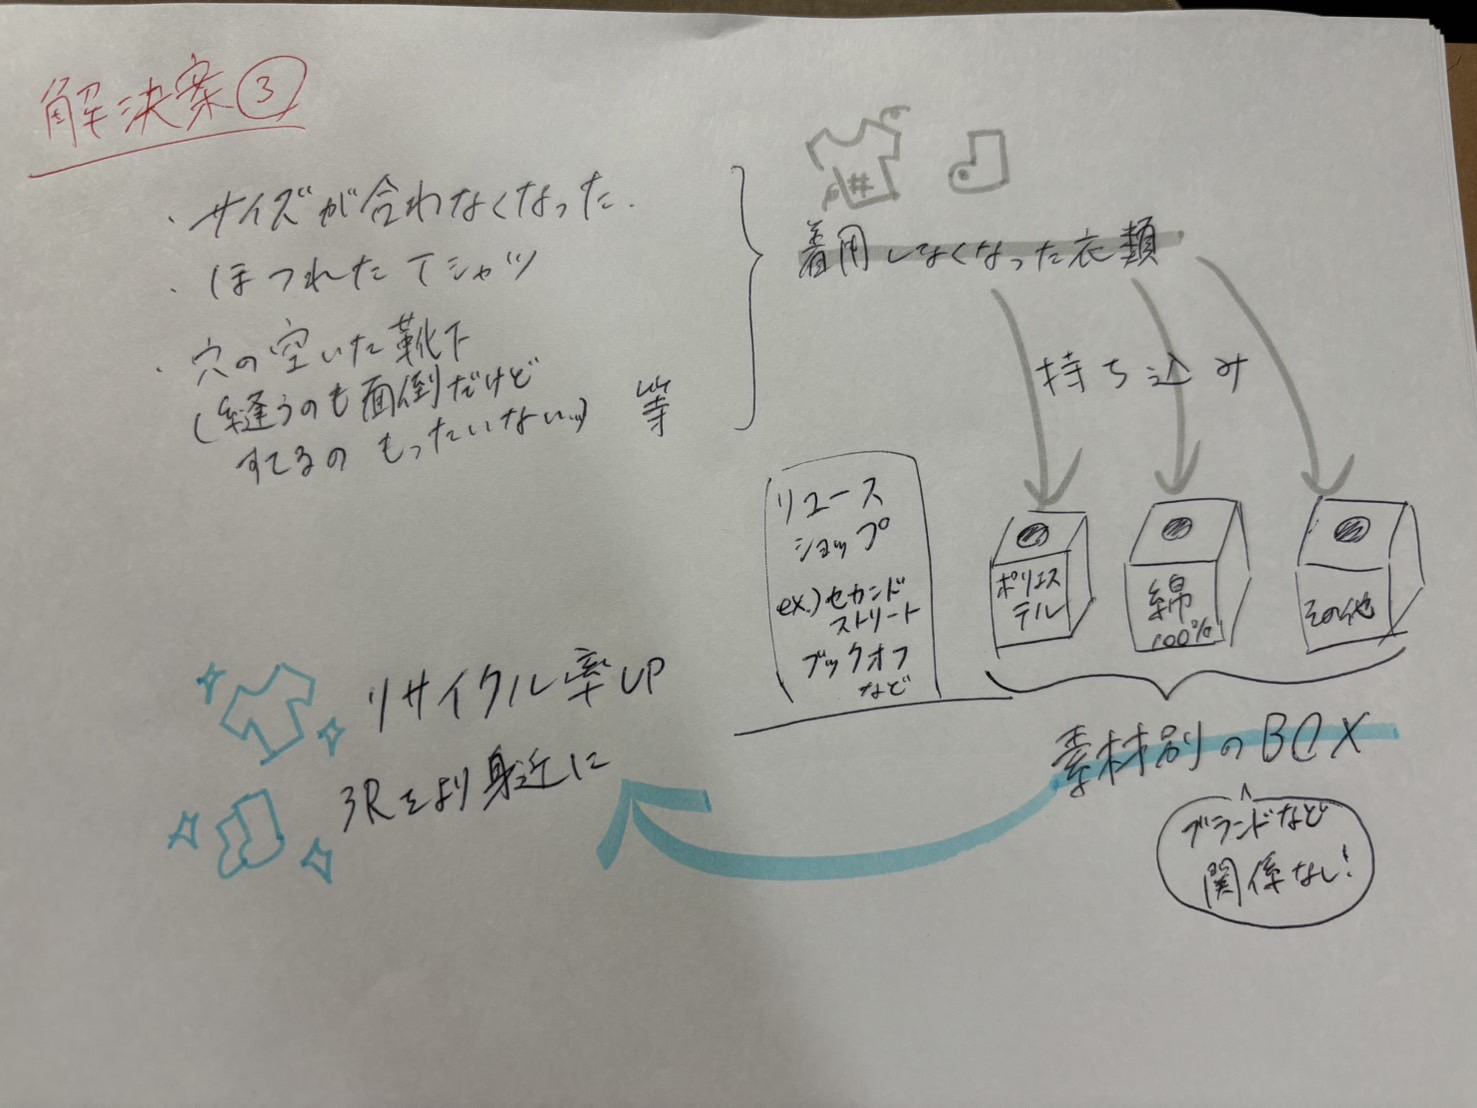 解決案③
・サイズが合わなくなった.
・ほつれたTシャツ
・穴の空いた靴下
(縫うのも面倒だけど
すてるのもったいない…)
等
#
着用しなくなった衣類
持ち込み
リユース
ショップ
ex.)セカンド
ストリート
ブックオフ
など
ポリエス
テル
綿
100%
その他
素材別のBOX
ブランドなど
関係なし!
リサイクル率UP
3Rをより身近に